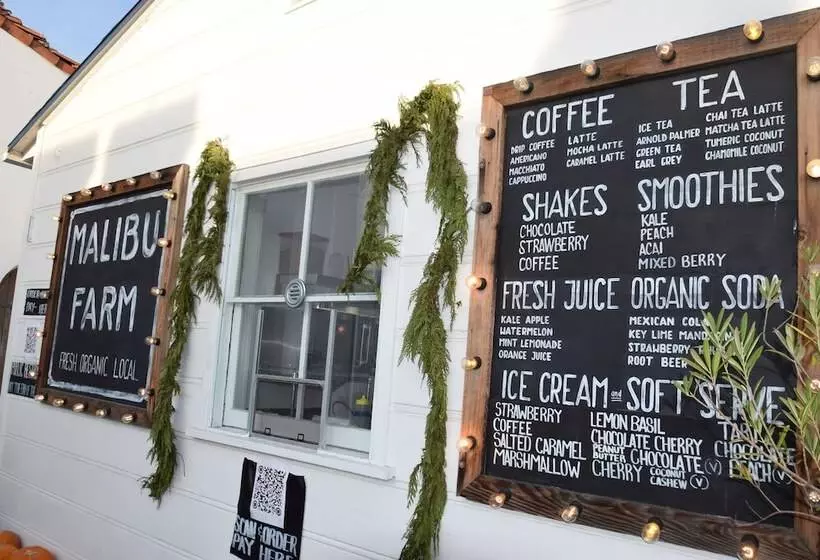 MALIBU
FARM
FRESH ORGANIC LOCAL
ORDER
COFFEE
DRIP COFFEE
AMERICANO
MACCHIATO
CAPPUCCINO
LATTE
MOCHA LATTE
CARAMEL LATTE
TEA
ICE TEA
ARNOLD PALMER
GREEN TEA
EARL GREY
CHAI TEA LATTE
MATCHA TEA LATTE
TUMERIC COCONUT
CHAMOMILE COCONUT
SHAKES
CHOCOLATE
STRAWBERRY
COFFEE
SMOOTHIES
KALE
PEACH
ACAI
MIXED BERRY
FRESH JUICE
KALE APPLE
WATERMELON
MINT LEMONADE
ORANGE JUICE
ORGANIC SODA
MEXICAN
KEY LIME
STRAWBERRY
ROOT BEER
ICE CREAM AND SOFT SERVE
STRAWBERRY
COFFEE
SALTED CARAMEL
MARSHMALLOW
LEMON BASIL
CHOCOLATE CHERRY
PEANUT BUTTER CHOCOLATE V
CHERRY COCONUT CASHEW V
CHOCOLATE
PEACH
SCAN ORDER
PAY HERE